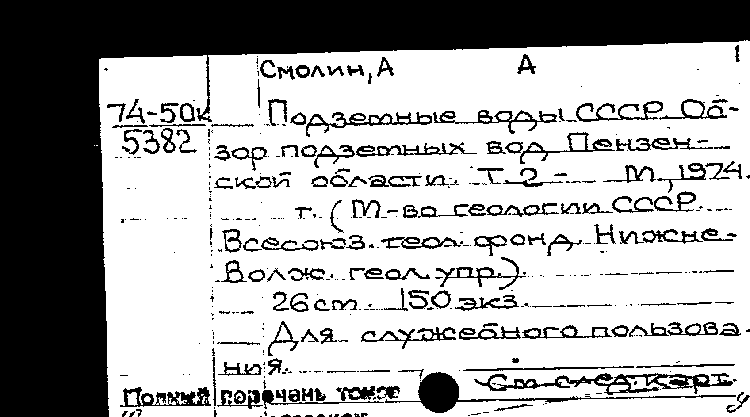 Смолин, А А 1
74-50к Подземные воды СССР. Об-
5382 зор подземных вод Пензен-
ской области. Т. 2 - М, 1974.
т. (М-во геологии СССР.
Всесоюз. геол. фонд. Нижне-
Волж. геол. упр.).
26 см. 150 экз.
Для служебного пользова-
ния.
См след. карт.
Полный перечень томов